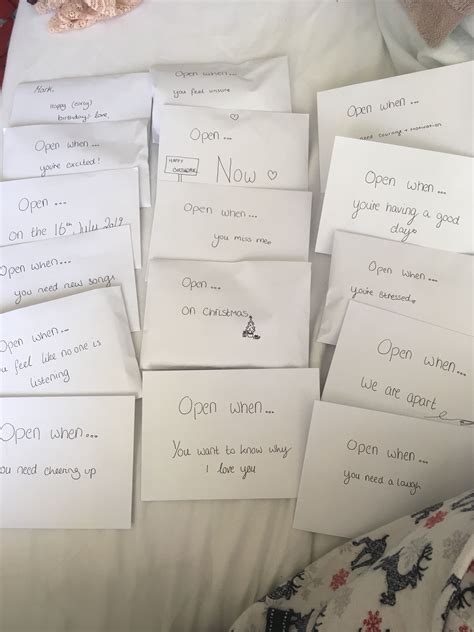 Mark,
Happy (early)
birthday! love,
Open when...
you're excited!
Open ...
on the 16th July 2019
Open when...
you need new songs
Open when...
you feel like no one is
listening
Open when...
you need cheering up
Open when...
you feel unsure
Open ...
HAPPY
Now ♡
Open when...
you miss me.
Open...
on Christmas
Open when...
You want to know why
I love you
Open when...
need courage + motivation
Open when...
you're having a good
day.
Open when...
you're stressed.
Open when...
We are apart
Open when...
you need a laugh